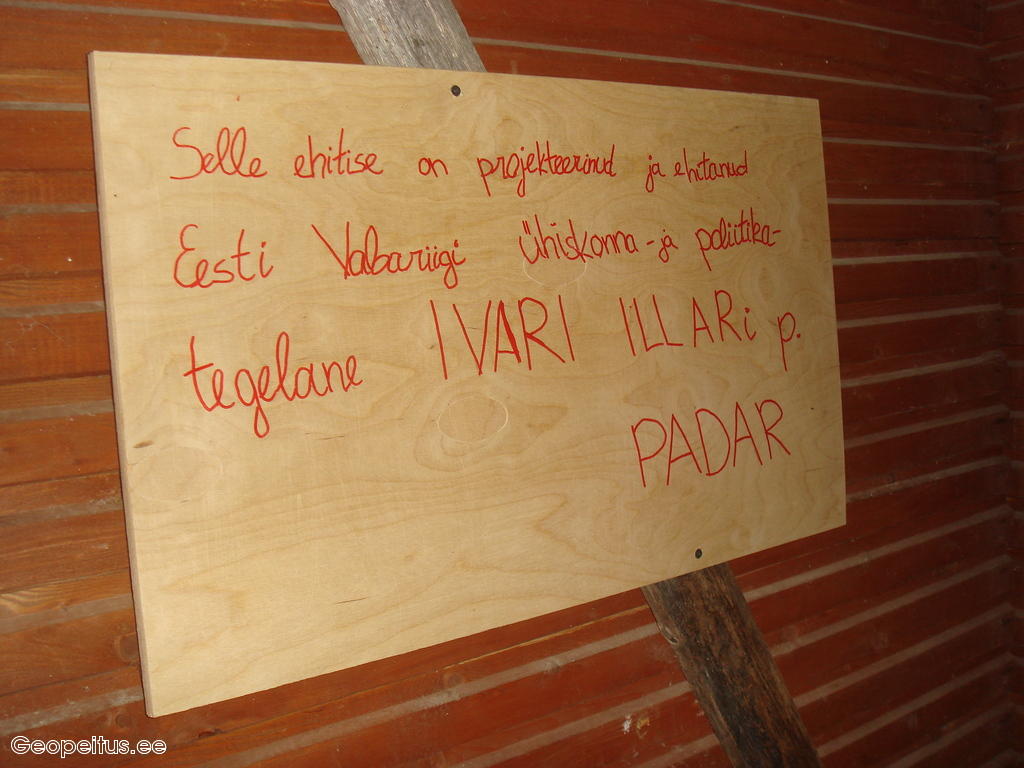 Selle ehitise on projekteerinud ja ehitanud
Eesti Vabariigi Ühiskonna-ja poliitika-
tegelane IVARI ILLARi p.
PADAR
Geopeitus.ee